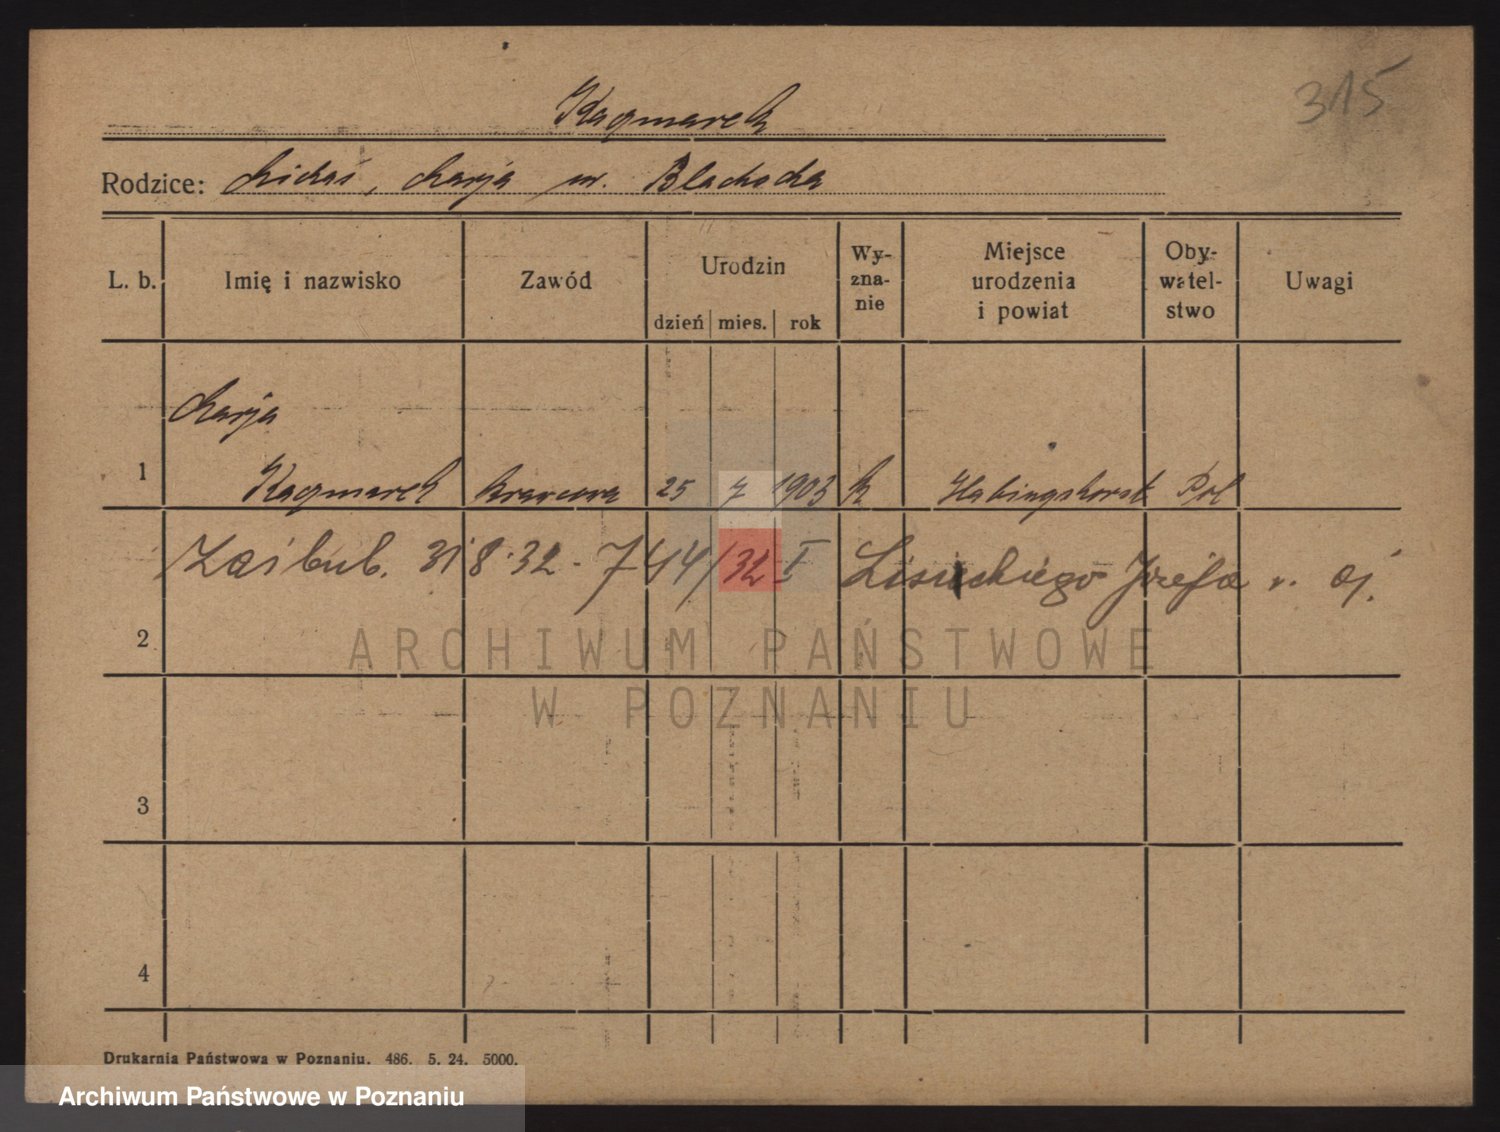 315
Kaczmarek
Rodzice: Michał, Marja ur. Blachocka
L. b. Imię i nazwisko Zawód Urodzin dzień mies. rok Wy-zna-nie Miejsce urodzenia i powiat Oby-watel-stwo Uwagi
Marja
1 Kaczmarek krawcowa 25 7 1903 k Habingshorst Pol
31 8·32 - 744/32 I Józefa
2
ARCHIWUM PAŃSTWOWE
W POZNANIU
3
4
Drukarnia Państwowa w Poznaniu. 486. 5. 24. 5000.
Archiwum Państwowe w Poznaniu